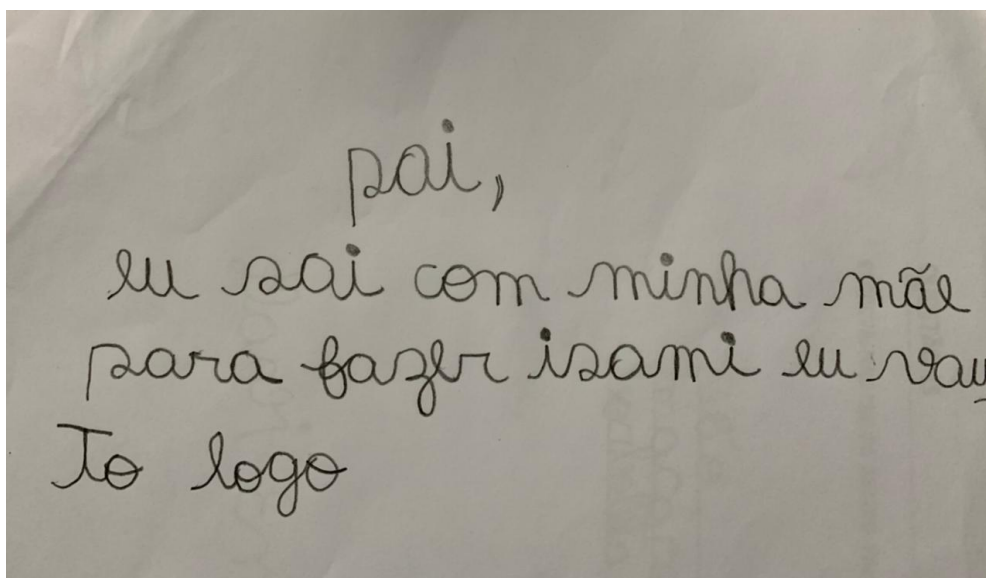 pai,
eu sai com minha mãe
para fazer isami eu vau
To logo